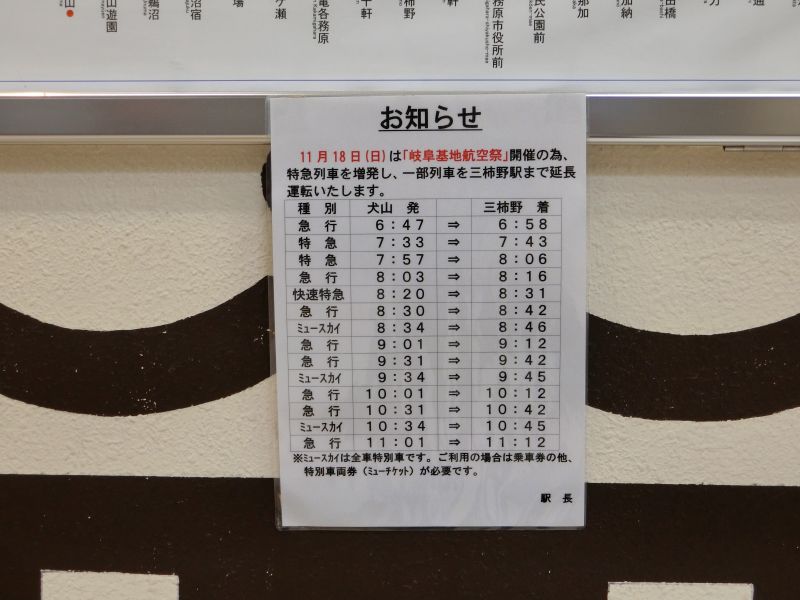 山
山遊園
鵜沼
沼宿
場
ケ瀬
各務原
十軒
柿野
軒
務原市役所前
民公園前
那加
加納
田橋
力
通
お知らせ
11月18日(日)は「岐阜基地航空祭」開催の為、
特急列車を増発し、一部列車を三柿野駅まで延長
運転いたします。
種 別 犬山 発 三柿野 着
急 行 6：47 ⇒ 6：58
特 急 7：33 ⇒ 7：43
特 急 7：57 ⇒ 8：06
急 行 8：03 ⇒ 8：16
快速特急 8：20 ⇒ 8：31
急 行 8：30 ⇒ 8：42
ﾐｭｰｽｶｲ 8：34 ⇒ 8：46
急 行 9：01 ⇒ 9：12
急 行 9：31 ⇒ 9：42
ﾐｭｰｽｶｲ 9：34 ⇒ 9：45
急 行 10：01 ⇒ 10：12
急 行 10：31 ⇒ 10：42
ﾐｭｰｽｶｲ 10：34 ⇒ 10：45
急 行 11：01 ⇒ 11：12
※ﾐｭｰｽｶｲは全車特別車です。ご利用の場合は乗車券の他、
特別車両券（ﾐｭｰﾁｹｯﾄ）が必要です。
駅 長